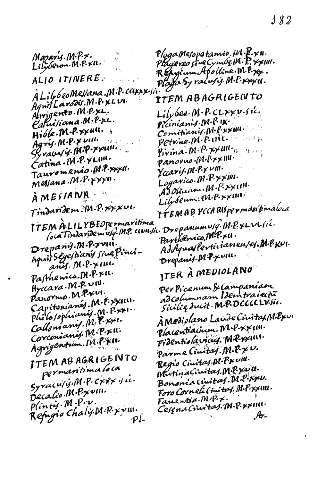 182
Mazaris. M.P.X.
Lilybeum. M.P.XII.
ALIO ITINERE.
A Lilybeo Messana. M.P.CCXXX. sic.
Aquis Larodes. M.P.XLVI.
Agrigento. M.P.XL.
Calvisiana. M.P.XL.
Hible. M.P.XXIIII.
Agris. M.P.XVIII.
Syracusis. M.P.XXIIII.
Catina. M.P.XLIIII.
Tauromenio. M.P.XXXII.
Messana. M.P.XXXII.
À MESSANA
Tindaridem. M.P.XXXVI.
ITEM A LILYBEO per maritima
loca Tindaridem usq. M.P.
Drepanis. M.P.XVIII.
Aquis Segestianis sive Pinci-
anis. M.P.XIIII.
Parthenico. M.P.XII.
Hyccara. M.P.VIII.
Panormo. M.P.XVI.
Capitonianis. M.P.XXIIII.
Philosophianis. M.P.XXI.
Callonianis. M.P.XXI.
Corconianis. M.P.XII.
Agrigentum. M.P.XII.
ITEM AB AGRIGENTO
per maritima loca
Syracusis. M.P.CXXX sic.
Decalio. M.P.XVIII.
Plintis. M.P.V.
Refugio Chalis. M.P.XVIII.
Pl-
Plaga Mesopotamio. M.P.XII.
Plaga Syracusis. M.P.XXXII.
ITEM AB AGRIGENTO
Lilybeo. M.P.CLXXV. sic.
Picinianis. M.P.IX.
Comitianis. M.P.XXIIII.
Petrina. M.P.IIII.
Pirina. M.P.XXIIII.
Panormo. M.P.XXIIII.
Ycaris. M.P.XVI.
Longarico. M.P.XXIIII.
Ad Olivam. M.P.XXIIII.
Lilybeum. M.P.XXIIII.
ITEM AB YCCARIS per maritima loca
Drepanum usq. M.P.XLVI. sic.
Parthenico. M.P.XII.
Ad Aquas Perticianenses. M.P.XVI.
Drepanis. M.P.XVIII.
ITER À MEDIOLANO
Per Picenum & Campaniam
ad columnam Identraiectum
Siciliae ducit. M.P.DCCCCLVI. sic.
À Mediolano Laude Civitas. M.P.XVI
Placentia Civitas. M.P.XXIIII.
Fidentiola vicus. M.P.XXIIII.
Parme Civitas. M.P.XV.
Regio Civitas. M.P.XVIII.
Mutina Civitas. M.P.XVII.
Bononia Civitas. M.P.XXV.
Foro Corneli Civitas. M.P.XXIIII.
Faventia. M.P.X.
Cesena Civitas. M.P.XXIIII.